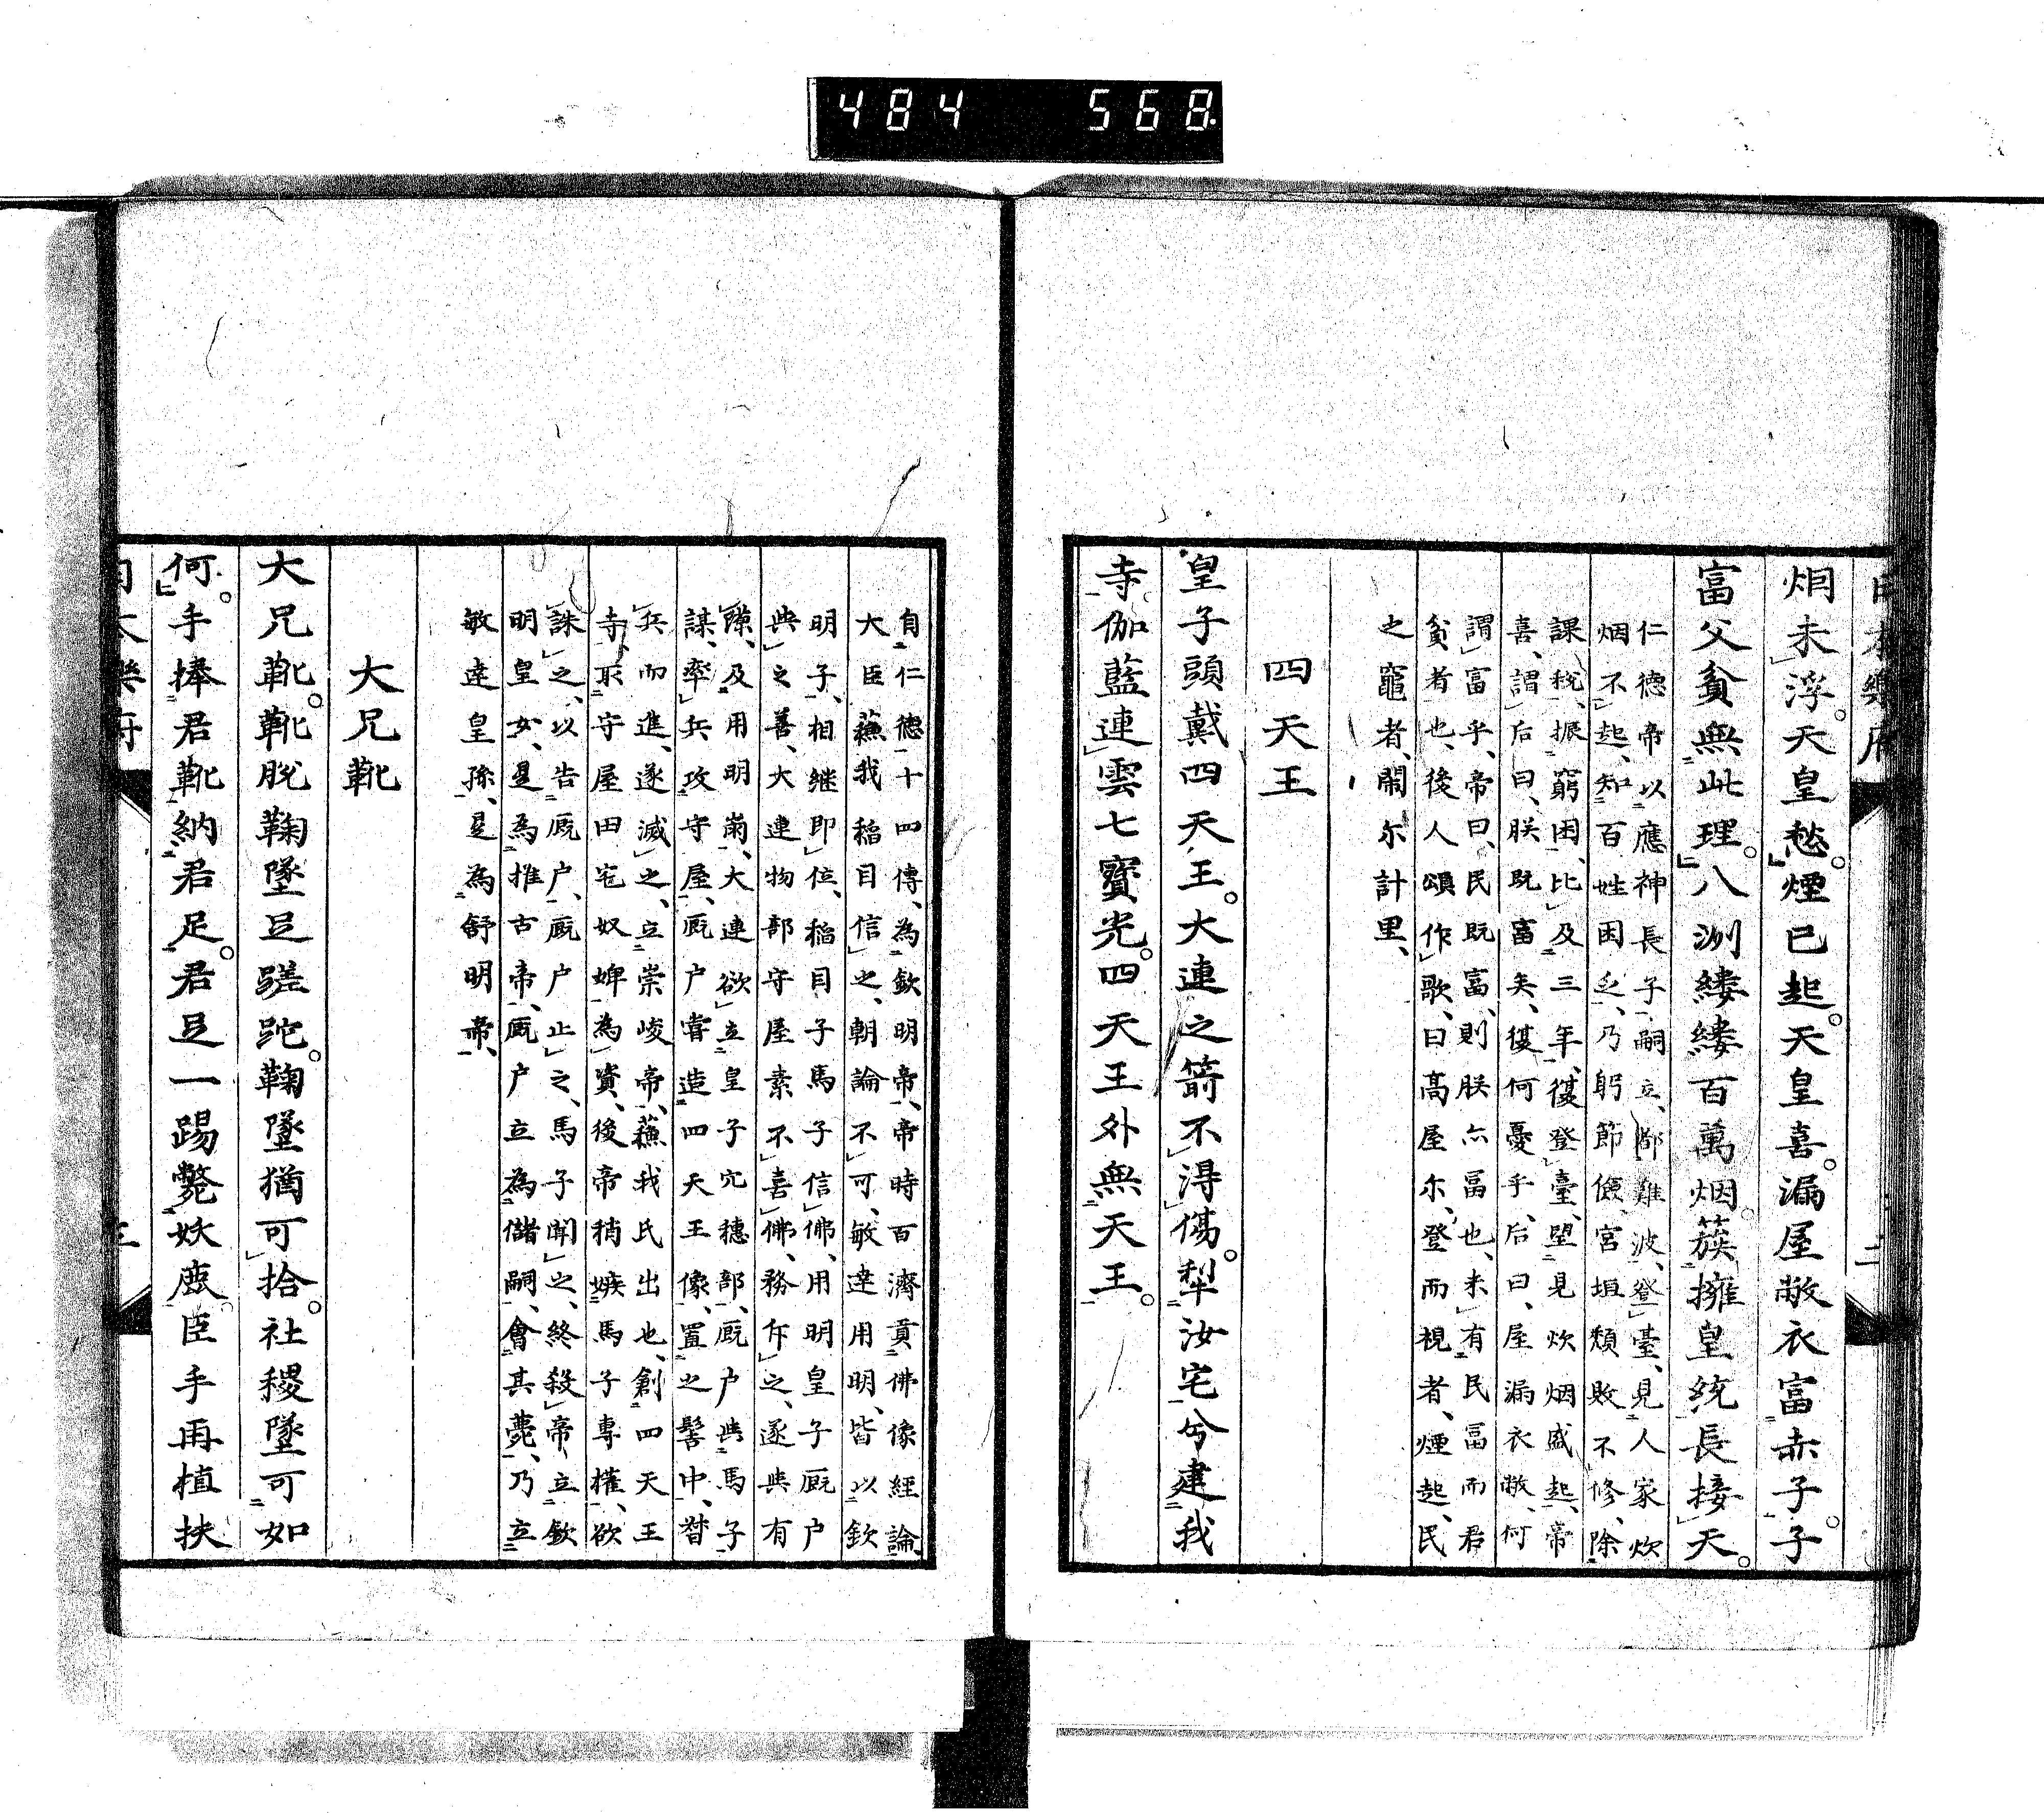 484 568
日本樂府 二
烟未浮。天皇愁。煙已起。天皇喜。漏屋敝衣富赤子。子
富父貧無此理。八洲縷縷百萬烟。簇擁皇統長接天。
仁德帝以應神長子嗣立、都難波、登臺、見人家炊
烟不起、知百姓困乏、乃躬節儉、宮垣頽敗不修、除
課稅、振窮困、比及三年、復登臺、望見炊烟盛起、帝
喜、謂后曰、朕既富矣、復何憂乎、后曰、屋漏衣敝、何
謂富乎、帝曰、民既富、則朕亦富也、未有民富而君
貧者也、後人頌作歌、曰高屋尓、登而視者、煙起、民
之竈者、閙尓計里、
四天王
皇子頭戴四天王。大連之箭不得傷。犁汝宅兮建我
寺。伽藍連雲七寶光。四天王外無天王。
自仁德十四傳、為欽明帝、帝時百濟貢佛像經論、
大臣蘓我稻目信之、朝論不可、敏達用明、皆以欽
明子、相継即位、稻目子馬子信佛、用明皇子厩户
與之善、大連物部守屋素不喜佛、務斥之、遂與有
隙、及用明崩、大連欲立皇子穴穗部、厩户與馬子
謀、率兵攻守屋、厩户嘗造四天王像、置之髻中、督
兵而進、遂滅之、立崇峻帝、蘓我氏出也、創四天王
寺、取守屋田宅奴婢為資、後帝稍嫉馬子專權、欲
誅之、以告厩户、厩户止之、馬子聞之、終殺帝、立欽
明皇女、是為推古帝、厩户立為儲嗣、會其薨、乃立
敏達皇孫、是為舒明帝、
大兄靴
大兄靴。靴脫鞠墜足蹉跎。鞠墜猶可拾。社稷墜可如
何。手捧君靴納君足。君足一踢斃妖鹿。臣手再植扶
日本樂府 三